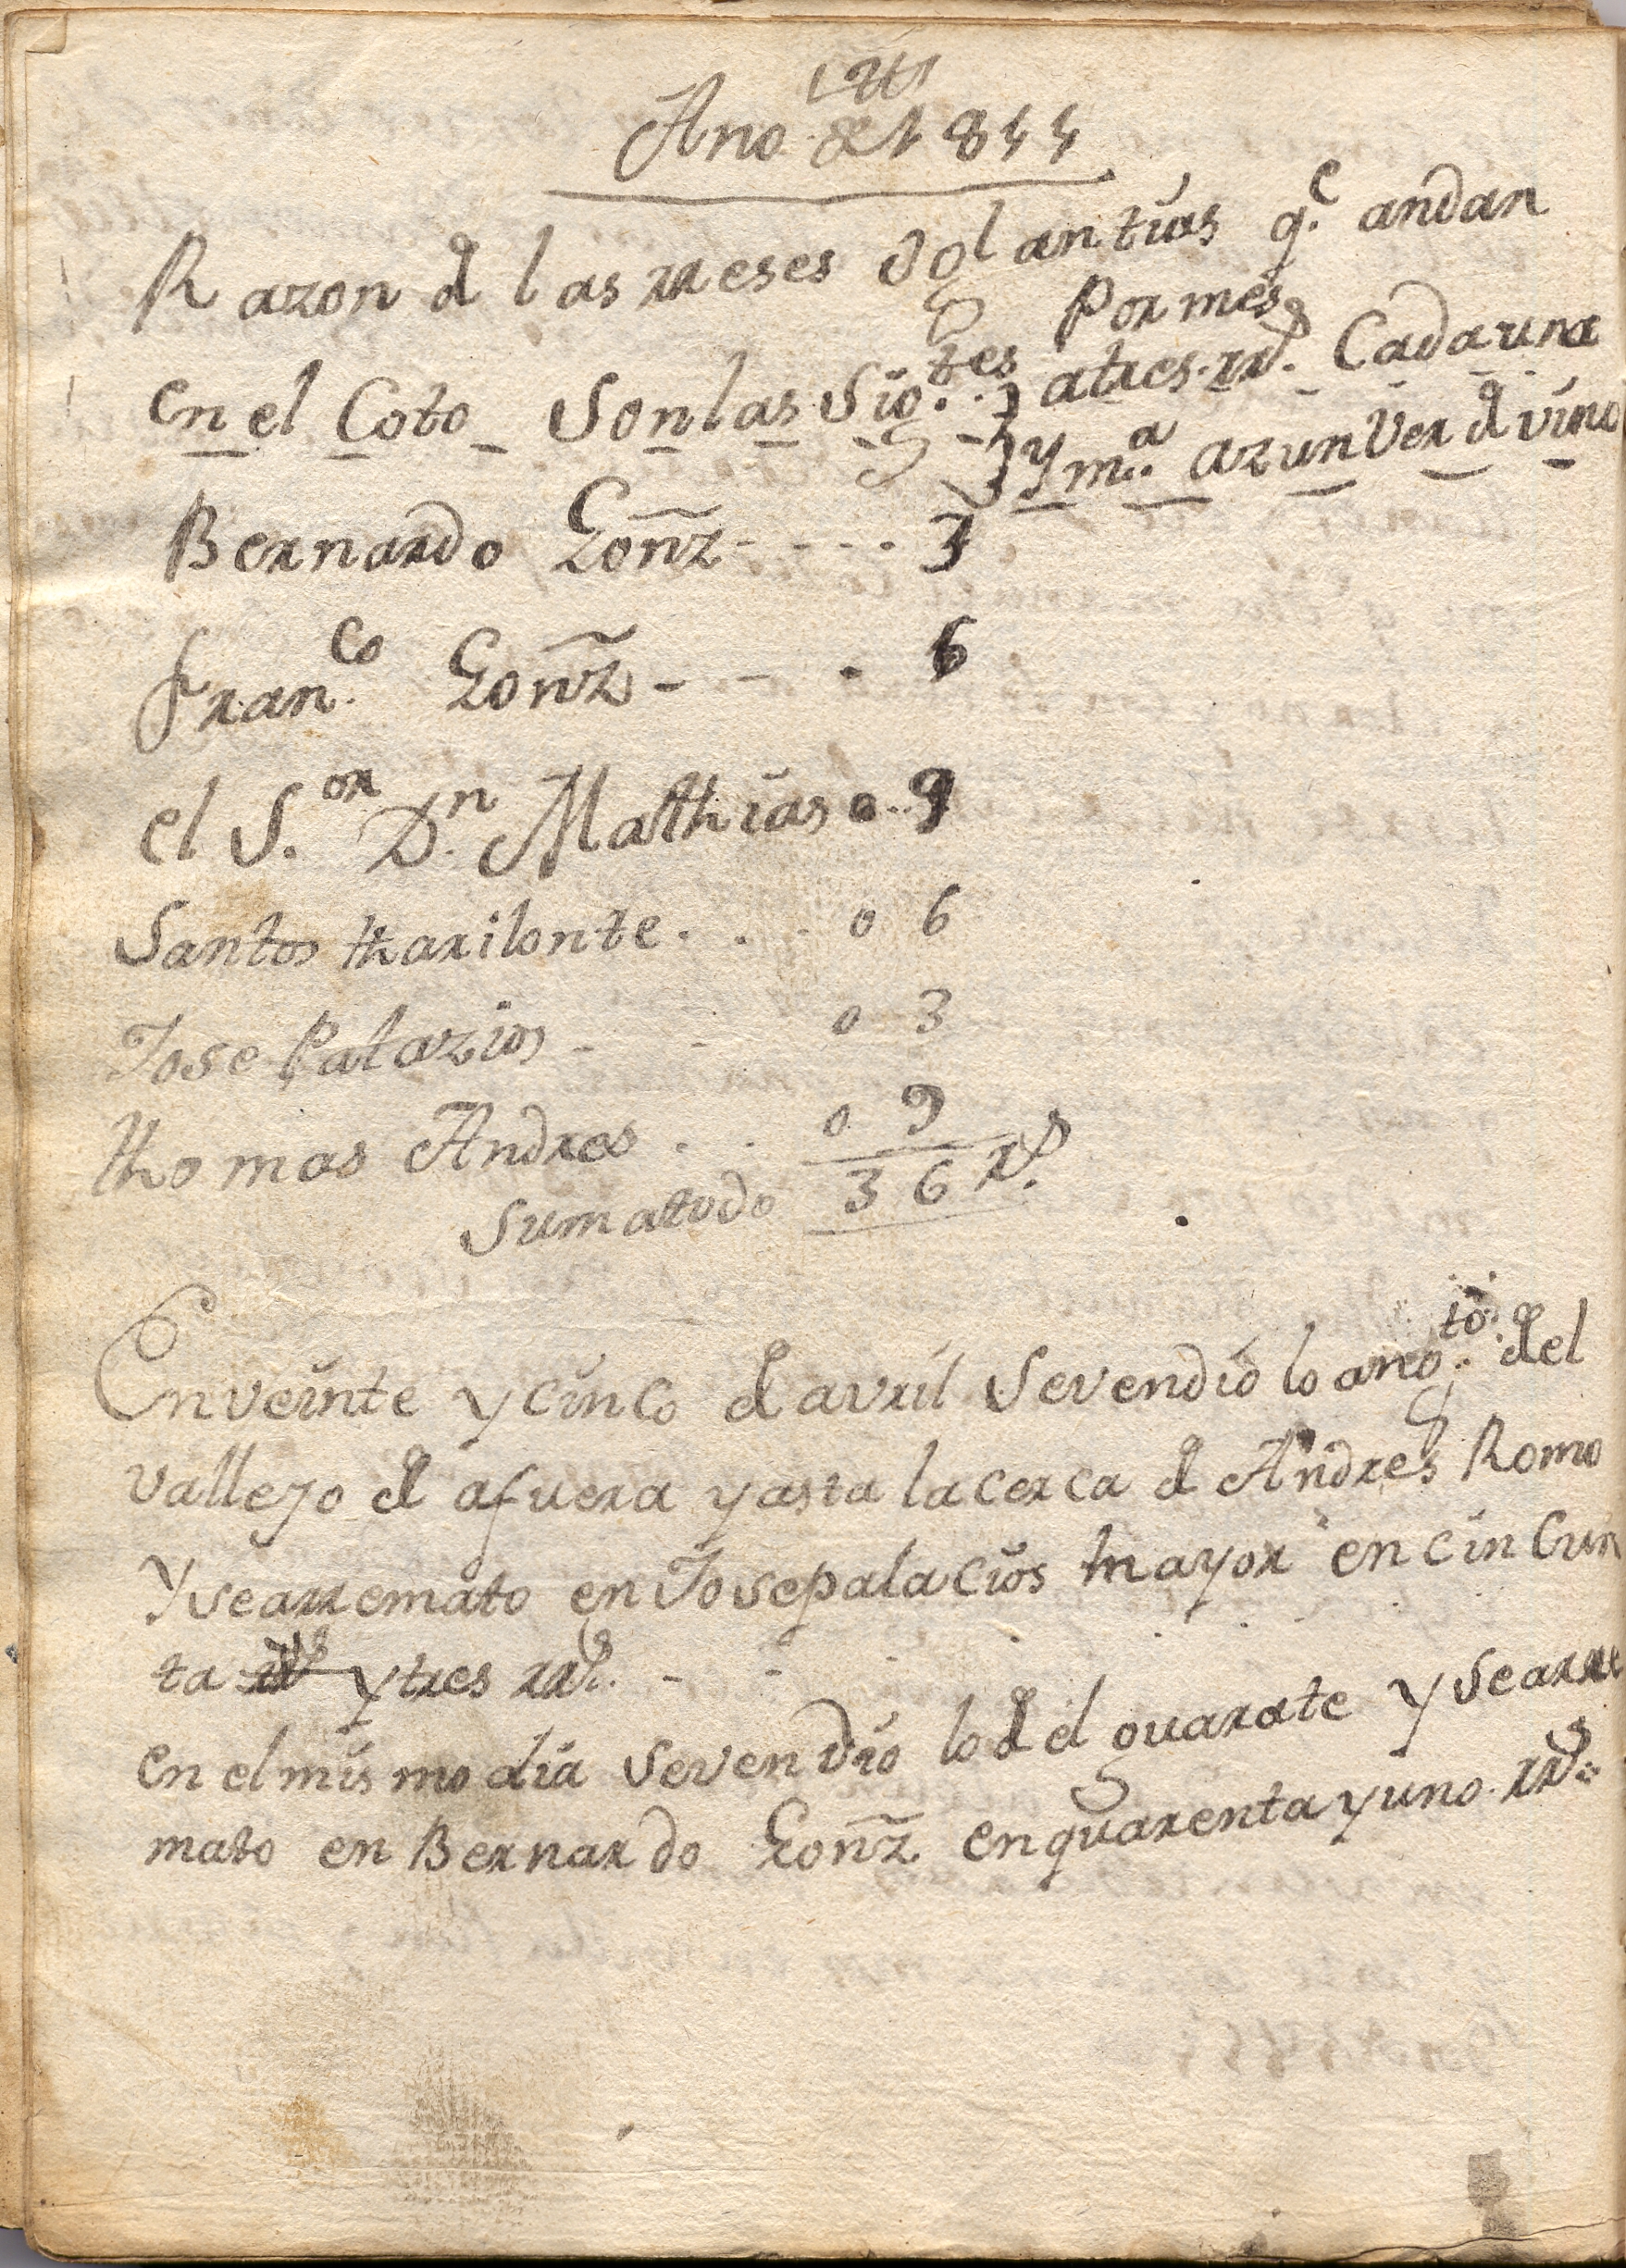 Año de 1844
Razon de las rreses Golantias q.e andan
Por mes
en el Coto Son las Sig.tes } a tres rr.s Cada una
y m.a azunver de vino
Bernardo Gonz̃ - - - - 3
Fran.co Gonz̃ - - - 6
el S.or D.n Mathias 0 . . 9
Santos tharilonte . . . 0 6
Jose Palazios - - 0 3
thomas Andres . . 0 9
Suma todo 36 r.s
En veinte y cinco de avril Se vendio lo ang.to del
vallejo de afuera y asta la cerca de Andres Romo
Y se arremato en Jose palacios mayor en cin Cuen
ta y tres rr.s - -
en el mismo dia Se vendio lo del guarate y Se arre
mato en Bernardo Gonz̃ en quarenta y uno rr.s